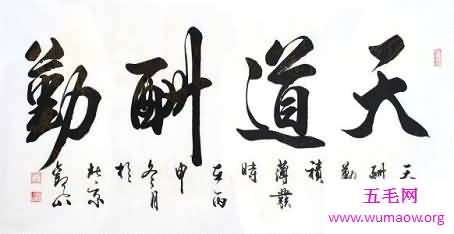 天道酬勤
天酬勤積薄發時在丙申冬月於北京
五毛网
www.wumaow.org